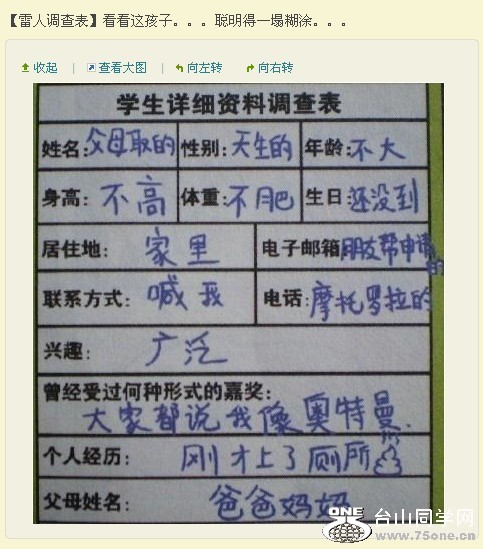 【雷人调查表】看看这孩子。。。聪明得一塌糊涂。。。
收起 | 查看大图 | 向左转 向右转
学生详细资料调查表
姓名:父母取的 性别:天生的 年龄:不大
身高:不高 体重:不肥 生日:还没到
居住地:家里 电子邮箱:朋友帮申请的
联系方式:喊我 电话:摩托罗拉的
兴趣:广泛
曾经受过何种形式的嘉奖:
大家都说我像奥特曼.
个人经历:刚才上了厕所
父母姓名:爸爸妈妈
ONE 台山同学网
www.75one.cn